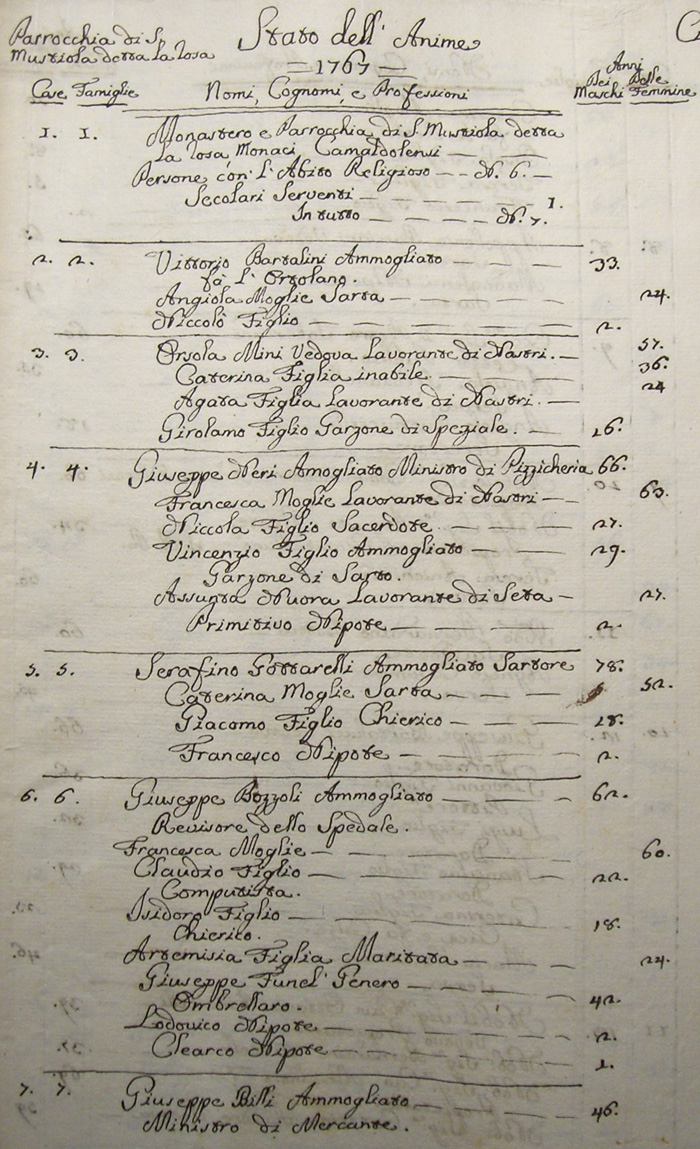 Parrocchia di S.
Mustiola detta La Rosa
Stato dell' Anime
1767
Case Famiglie
Nomi, Cognomi, e Professioni
Anni
Dei Maschi
Delle Femmine
1. 1. Monastero e Parrocchia di S. Mustiola detta
La Rosa, Monaci Camaldolensi — —
Persone con l'Abito Religioso — — N. 6. —
Secolari Serventi — — — — — 1.
In tutto — — — — N. 7.
2. 2. Vittorio Bartalini Ammogliato — — — 33.
fà l'Ortolano.
Angiola Moglie Sarta — — — — 24.
Niccolò Figlio — — — — — 2.
3. 3. Orsola Mini Vedova Lavorante di Nastri. — 57.
Caterina Figlia inabile. — — — 36.
Agata Figlia Lavorante di Nastri. — 24
Girolamo Figlio Garzone di Speziale. — 16.
4. 4. Giuseppe Neri Amogliato Ministro di Pizzicheria 66.
Francesca Moglie Lavorante di Nastri — 63.
Niccola Figlio Sacerdote. — — — 27.
Vincenzio Figlio Ammogliato — — — 29.
Garzone di Sarto.
Assunta Nuora Lavorante di Seta — 27.
Primitivo Nipote — — — — 2.
5. 5. Serafino Gottarelli Ammogliato Sartore 78.
Caterina Moglie Sarta — — — 52.
Giacomo Figlio Chierico — — — 18.
Francesco Nipote — — — — 2.
6. 6. Giuseppe Bozzoli Ammogliato — — — 62.
Revisore dello Spedale.
Francesca Moglie — — — — 60.
Claudio Figlio — — — — 22.
Computista.
Isidoro Figlio — — — — 18.
Chierico.
Artemisia Figlia Maritata — — — 24.
Giuseppe Funel' Genero — — —
Ombrellaro. — — — 42.
Lodovico Nipote — — — — 2.
Clearco Nipote — — — — 1.
7. 7. Giuseppe Billi Ammogliato — — — 46.
Ministro di Mercante.